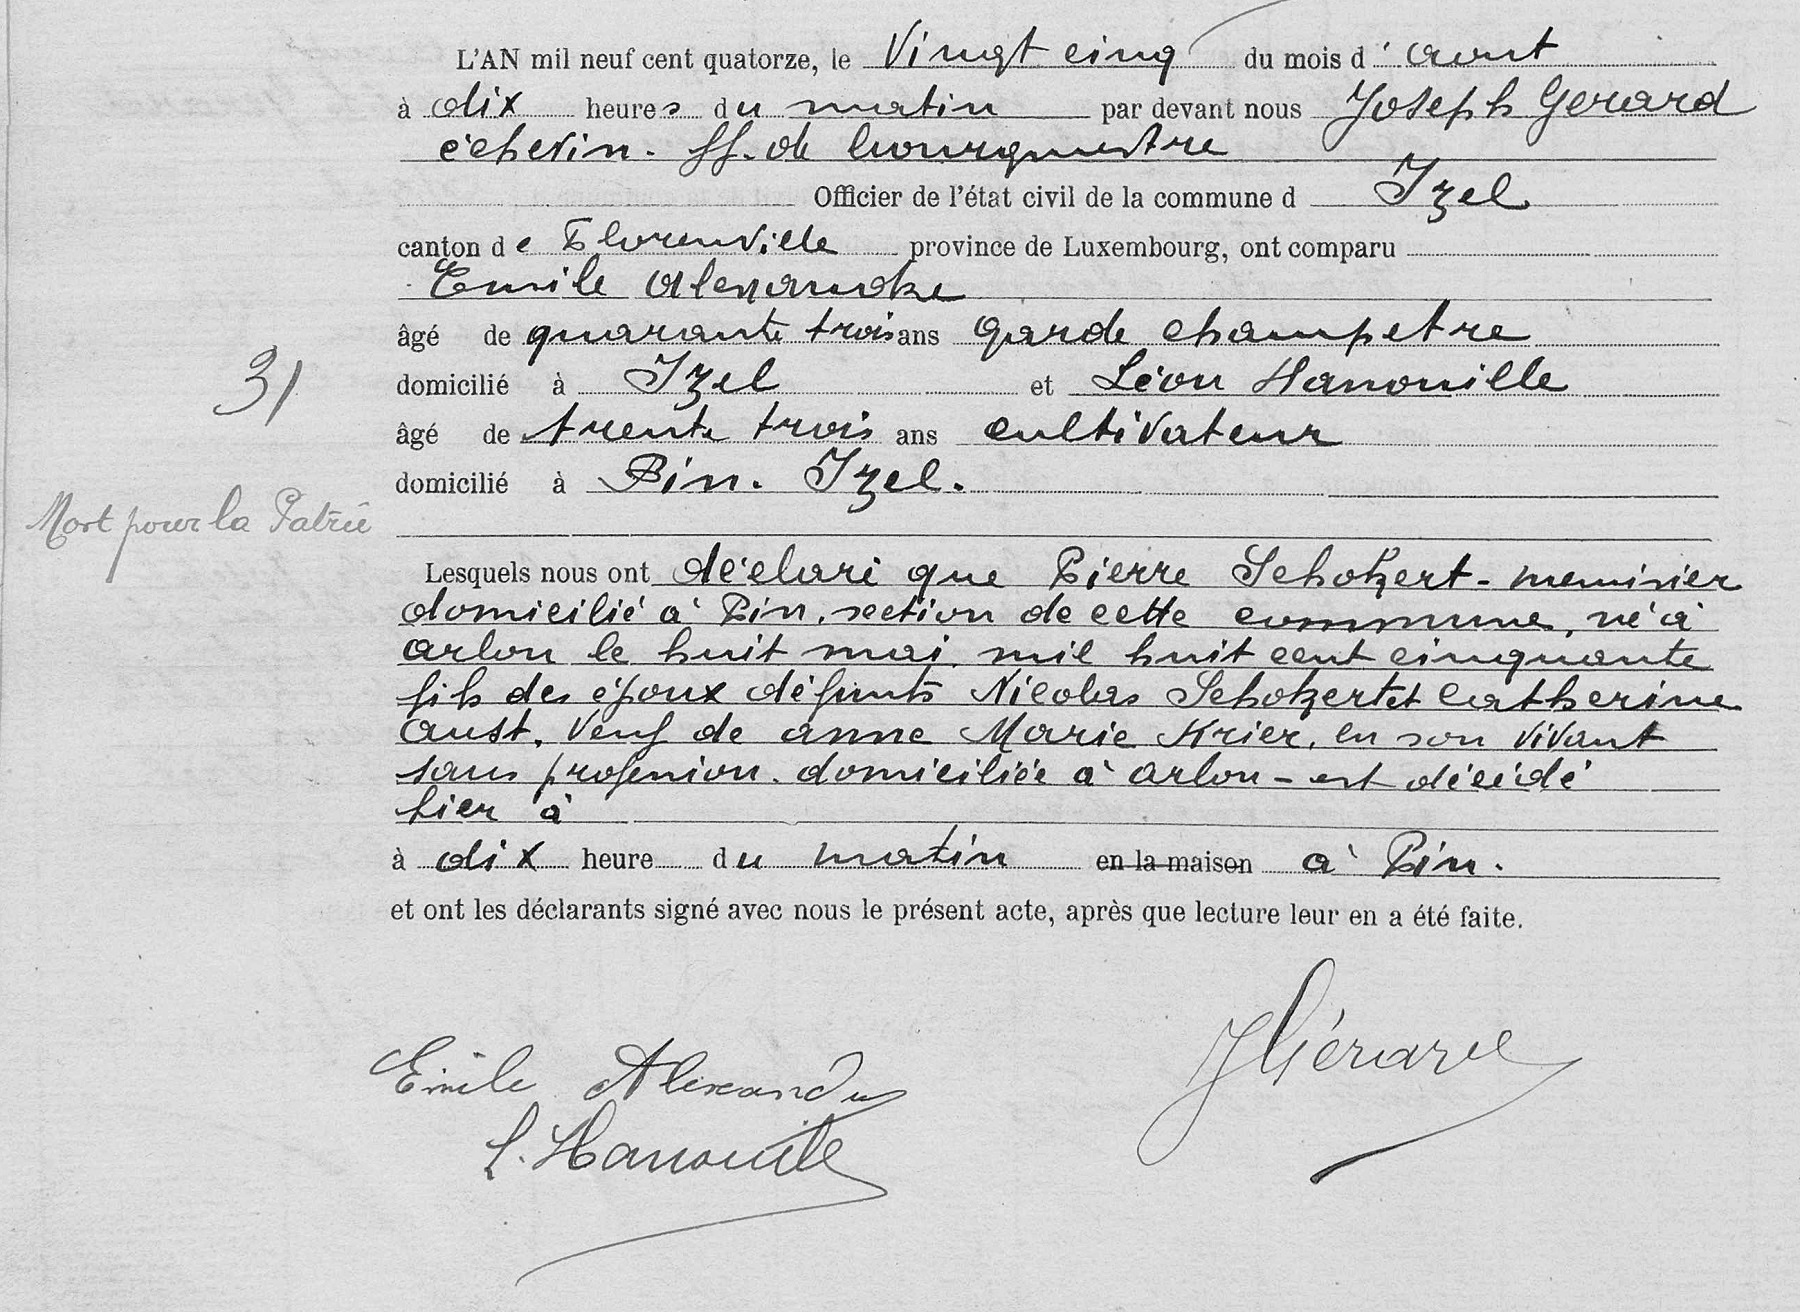 L'AN mil neuf cent quatorze, le Vingt cinq du mois d'aout
à dix heures du matin par devant nous Joseph Gerard
échevin. ff. de bourgmestre
Officier de l'état civil de la commune d Izel
canton de Florenville province de Luxembourg, ont comparu
Emile Alexandre
âgé de quarante trois ans garde champetre
domicilié à Izel et Léon Hanouille
âgé de trente trois ans cultivateur
domicilié à Pin. Izel.
31
Mort pour la Patrie
Lesquels nous ont déclaré que Pierre Schotzert - menuisier
domicilié à Pin, section de cette commune, né à
Arlon le huit mai mil huit cent cinquante
fils des époux défunts Nicolas Schotzert et Catherine
Aust. Veuf de Anne Marie Krier, en son vivant
sans profession. domiciliée à Arlon - est décédé
hier à
à dix heure du matin en la maison à Pin.
et ont les déclarants signé avec nous le présent acte, après que lecture leur en a été faite.
Emile Alexandre
JGérard
L. Hanouille